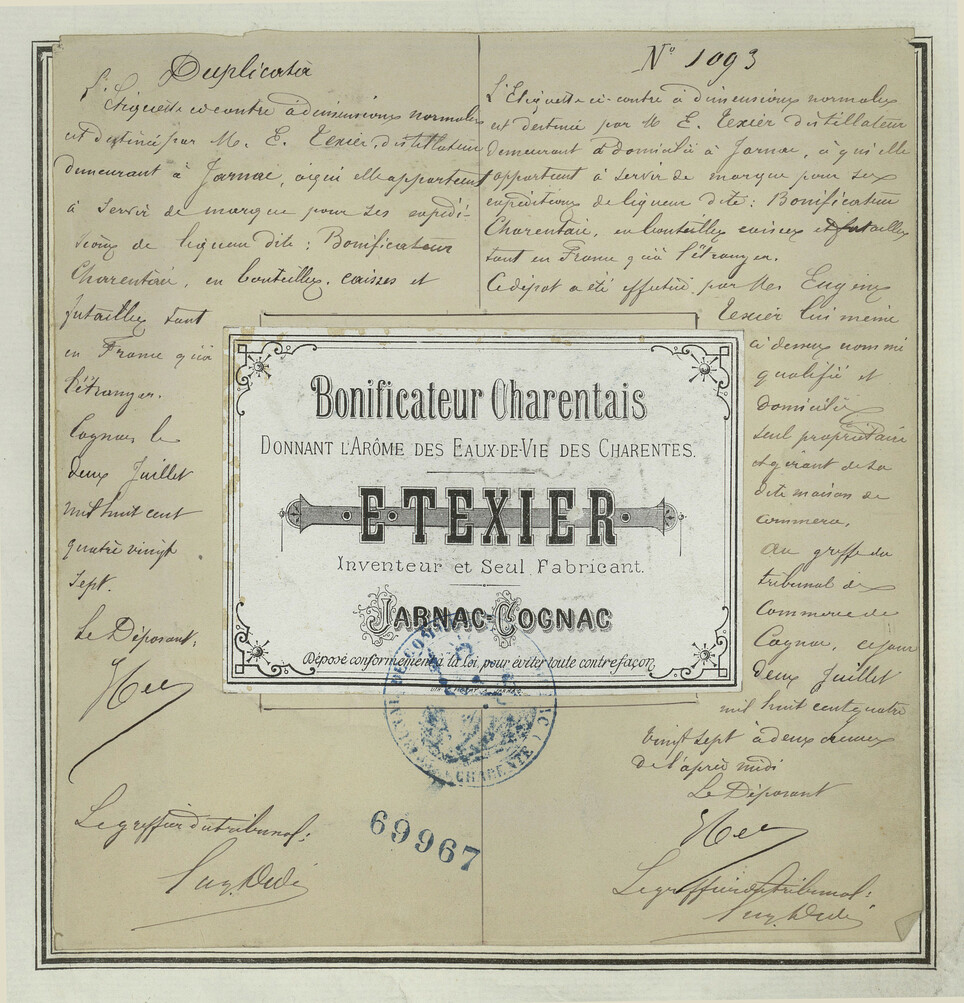 Duplicata
L'Etiquette ci-contre à dimensions normales
est destinée par M. E. Texier, distillateur
demeurant à Jarnac, à qui elle appartient
à servir de marque pour ses expédi-
tions de liqueur dite : Bonificateur
Charentais, en bouteilles, caisses et
futailles tant
en France qu'à
l'étranger.
Cognac, le
deux Juillet
mil huit cent
quatre vingt
sept.
Le Déposant,
Le greffier du tribunal:
N° 1093
L'Etiquette ci-contre à dimensions normales
est destinée par M. E. Texier distillateur
demeurant à domicilié à Jarnac, à qui elle
appartient à servir de marque pour ses
expéditions de liqueur dite : Bonificateur
Charentais, en bouteilles caisses et futailles
tant en France qu'à l'étranger.
Ce dépôt a été effectué par M. Eugène
Texier lui même
ci dessus nommé
qualifié et
domicilié
seul propriétaire
et gérant de sa
dite maison de
commerce,
au greffe du
tribunal de
Commerce de
Cognac, ce jour
deux Juillet
mil huit cent quatre
vingt sept à deux heures
de l'après midi
Le Déposant
Le greffier du tribunal:
Bonificateur Charentais
DONNANT L'ARÔME DES EAUX-DE-VIE DES CHARENTES.
E. TEXIER
Inventeur et Seul Fabricant.
JARNAC-COGNAC
Déposé conformément à la loi, pour éviter toute contrefaçon.
CHARENTE
69967